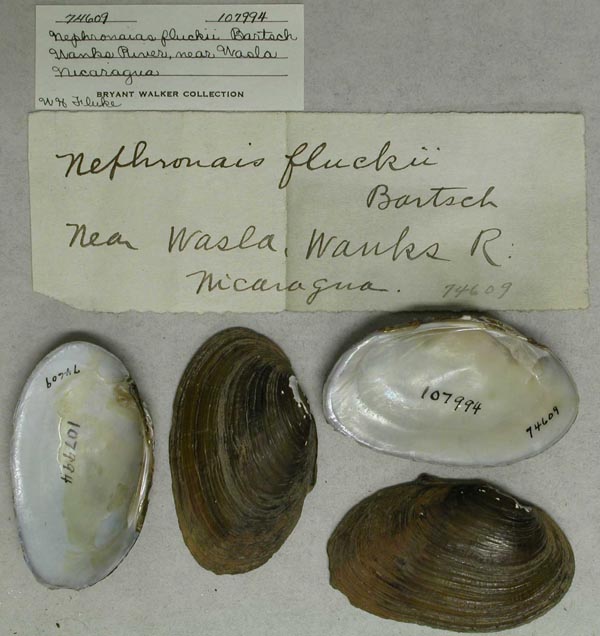 74609 107994
Nephronaias fluckii Bartsch
Wanks River, near Wasla
Nicaragua
BRYANT WALKER COLLECTION
W H Fluke
Nephronais fluckii
Bartsch
Near Wasla, Wanks R:
Nicaragua.
74609
74609
107994
107994
74609